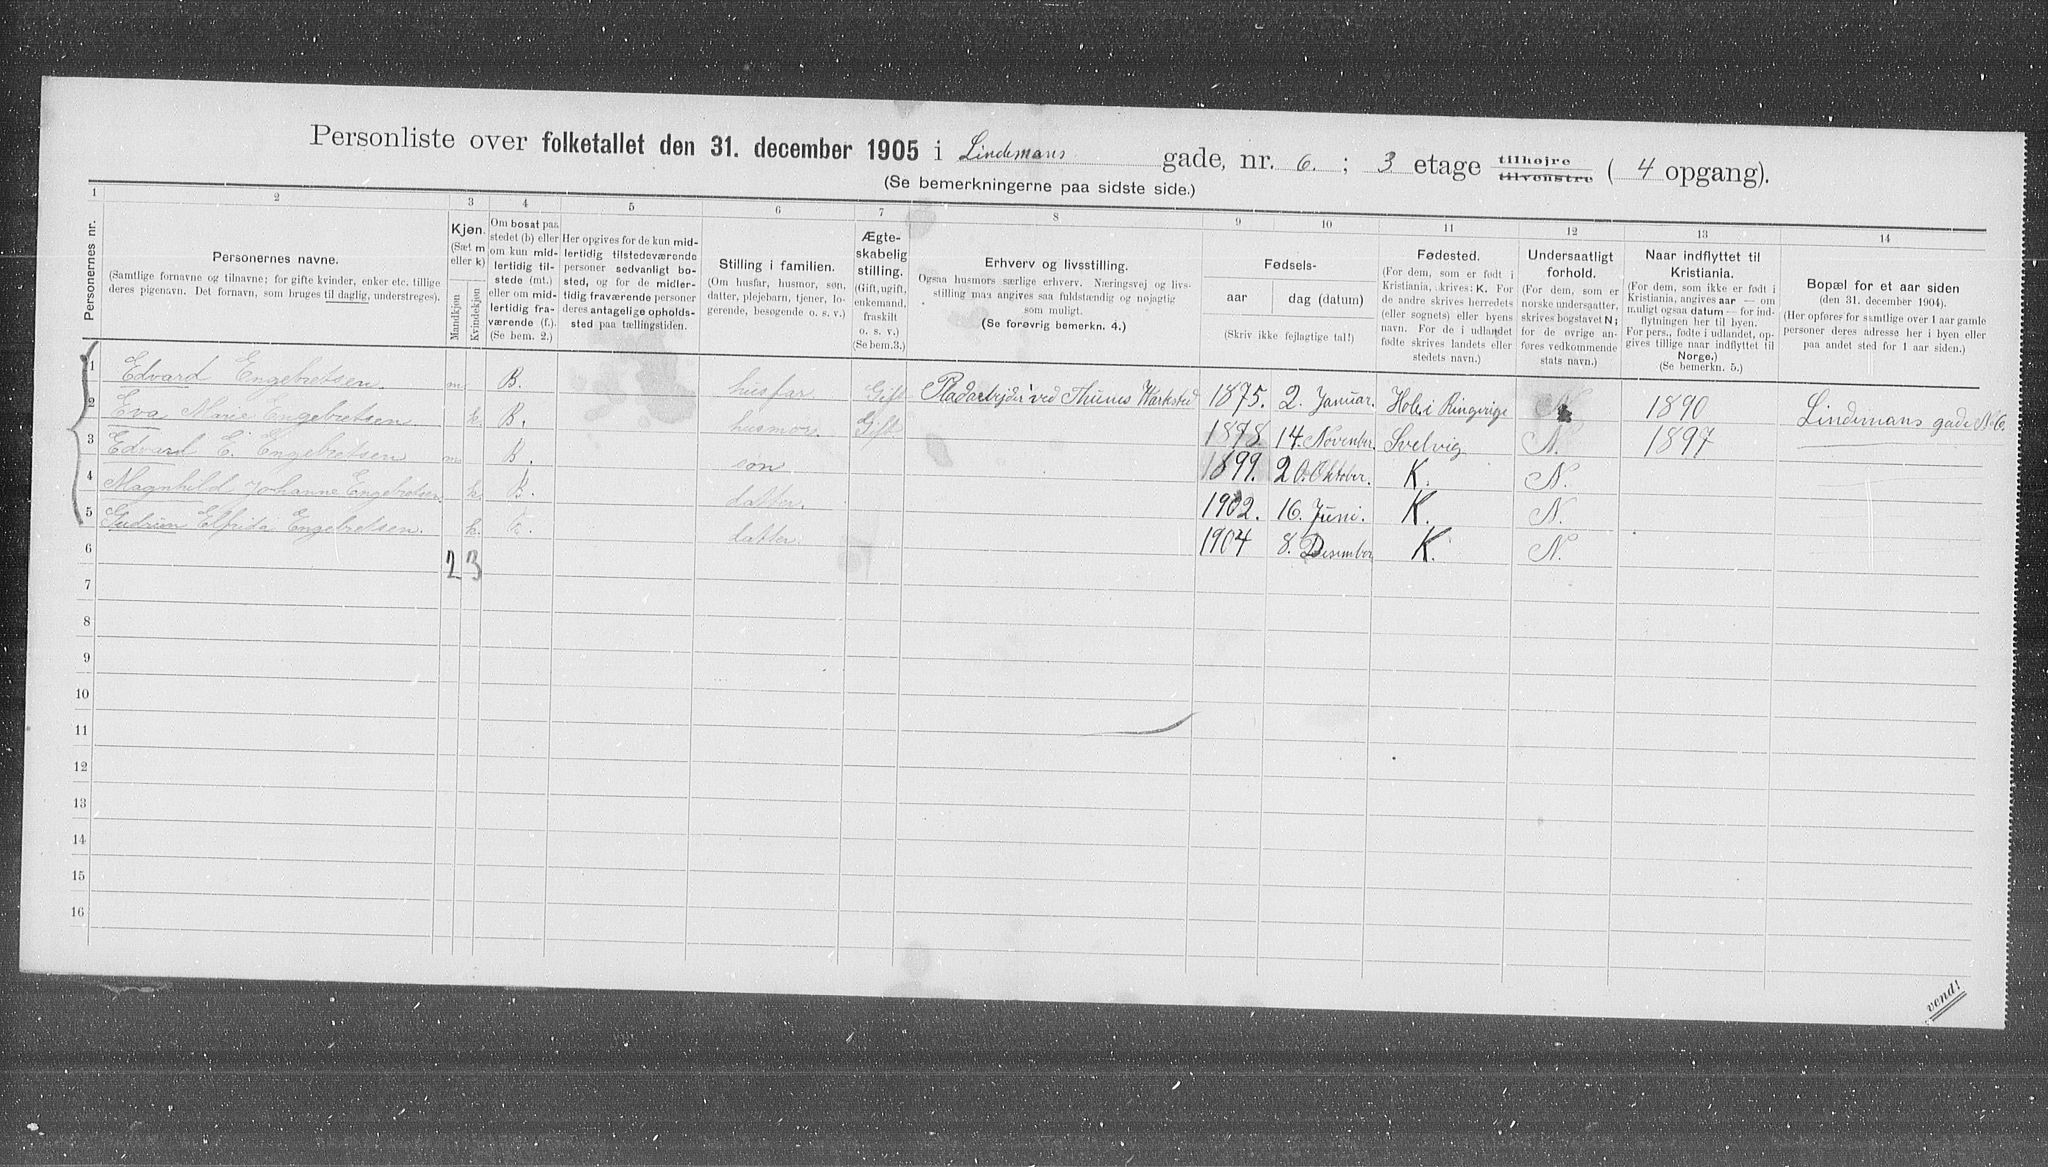 Personliste over folketallet den 31. december 1905 i Lindemans gade, nr. 6. ; 3 etage tilhøjre tilvenstre ( 4 opgang).
(Se bemerkningerne paa sidste side.)
1 2 3 4 5 6 7 8 9 10 11 12 13 14
Personernes nr.
Personernes navne.
(Samtlige fornavne og tilnavne; for gifte kvinder, enker etc. tillige
deres pigenavn. Det fornavn, som bruges til daglig, understreges).
Kjøn.
(Sæt m
eller k)
Mandkjøn
Kvindekjøn
Om bosat paa
stedet (b) eller
om kun mid-
lertidig til-
stede (mt.)
eller om mid-
lertidig fra-
værende (f.).
(Se bem. 2.)
Her opgives for de kun mid-
lertidig tilstedeværende
personer sedvanligt bo-
sted, og for de midler-
tidig fraværende personer
deres antagelige opholds-
sted paa tællingstiden.
Stilling i familien.
(Om husfar, husmor, søn,
datter, plejebarn, tjener, lo-
gerende, besøgende o. s. v.)
Ægte-
skabelig
stilling.
(Gift, ugift,
enkemand,
fraskilt
o. s. v.)
(Se bem.3.)
Erhverv og livsstilling.
Ogsaa husmors særlige erhverv. Næringsvej og livs-
stilling maa angives saa fuldstændig og nøjagtig
som muligt.
(Se forøvrig bemerkn. 4.)
Fødsels-
aar
dag (datum)
(Skriv ikke fejlagtige tal!)
Fødested.
(For dem, som er født i
Kristiania, skrives: K. For
de andre skrives herredets
(eller sognets) eller byens
navn. For de i udlandet
fødte skrives landets eller
stedets navn.)
Undersaatligt
forhold.
(For dem, som er
norske undersaatter,
skrives bogstavet N;
for de øvrige an-
føres vedkommende
stats navn.)
Naar indflyttet til
Kristiania.
(For dem, som ikke er født i
Kristiania, angives aar — om
muligt ogsaa datum — for ind-
flytningen her til byen.
For pers., fødte i udlandet, op-
gives tillige naar indflyttet til
Norge.)
(Se bemerkn. 5.)
Bopæl for et aar siden
(den 31. december 1904).
(Her opføres for samtlige over 1 aar gamle
personer deres adresse her i byen eller
paa andet sted for 1 aar siden.)
1 Edvard Engebretsen. m B. husfar Gift Pladarbejder ved Thunes Værksted 1875. 2. Januar. Hole i Ringrige N 1890 Lindemans gade No 6.
2 Eva Marie Engebretsen k. B. husmor. Gift. 1878. 14. November. Svelvig N. 1897
3 Edvard E. Engebretsen m B. søn 1899. 20. Oktober. K. N.
4 Magnhild Johanne Engebretsen. k. B. datter. 1902. 16. Juni. K. N.
5 Gudrun Elfrida Engebretsen. k. datter. 1904 8. Desember K. N.
6 2 3
7
8
9
10
11
12
13
14
15
16
vend!